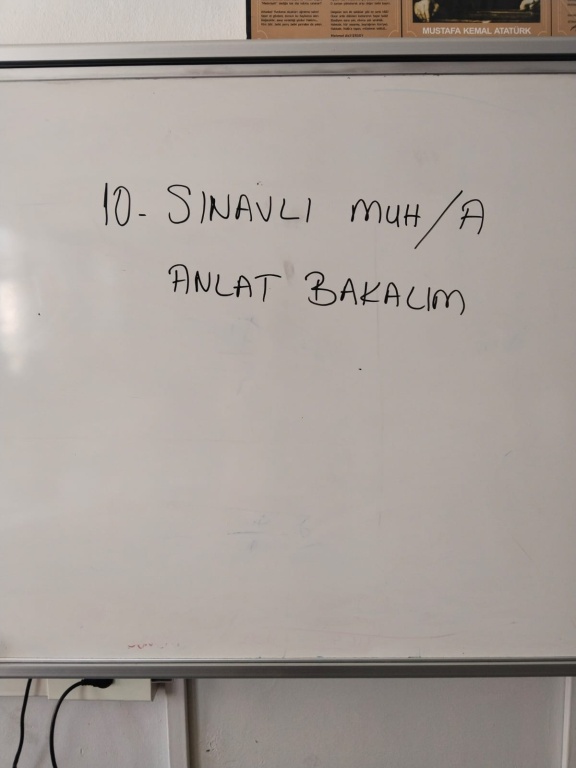 MUSTAFA KEMAL ATATÜRK
10- SINAVLI MUH/A
ANLAT BAKALIM